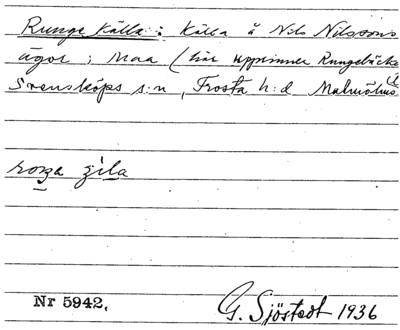 Runge källa: källa å Nils Nilssons
ägor i Maa (här upprinner Rungebäcken
Svensköps s:n, Frosta h:d Malmöhus l.
roŋa zila
Nr 5942. G. Sjöstedt 1936